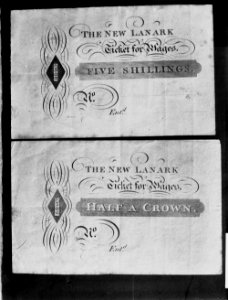 THE NEW LANARK
Ticket for Wages.
FIVE SHILLINGS.
No.
Entd.
THE NEW LANARK
Ticket for Wages.
HALF A CROWN.
No.
Entd.